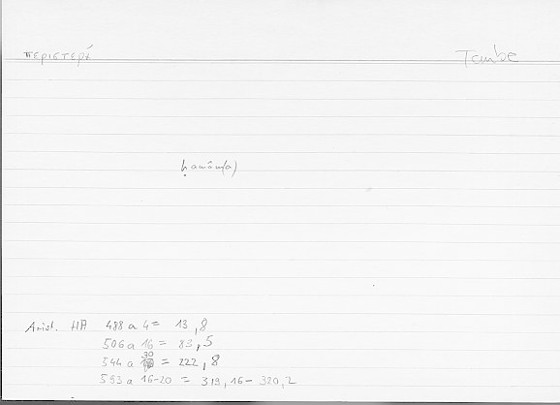 περιστερά Taube
ḥamām(a)
Arist. HA 488 a 4 = 13,8
506 a 16 = 83,5
544 a 30 = 222,8
593 a 16-20 = 319,16-320,2